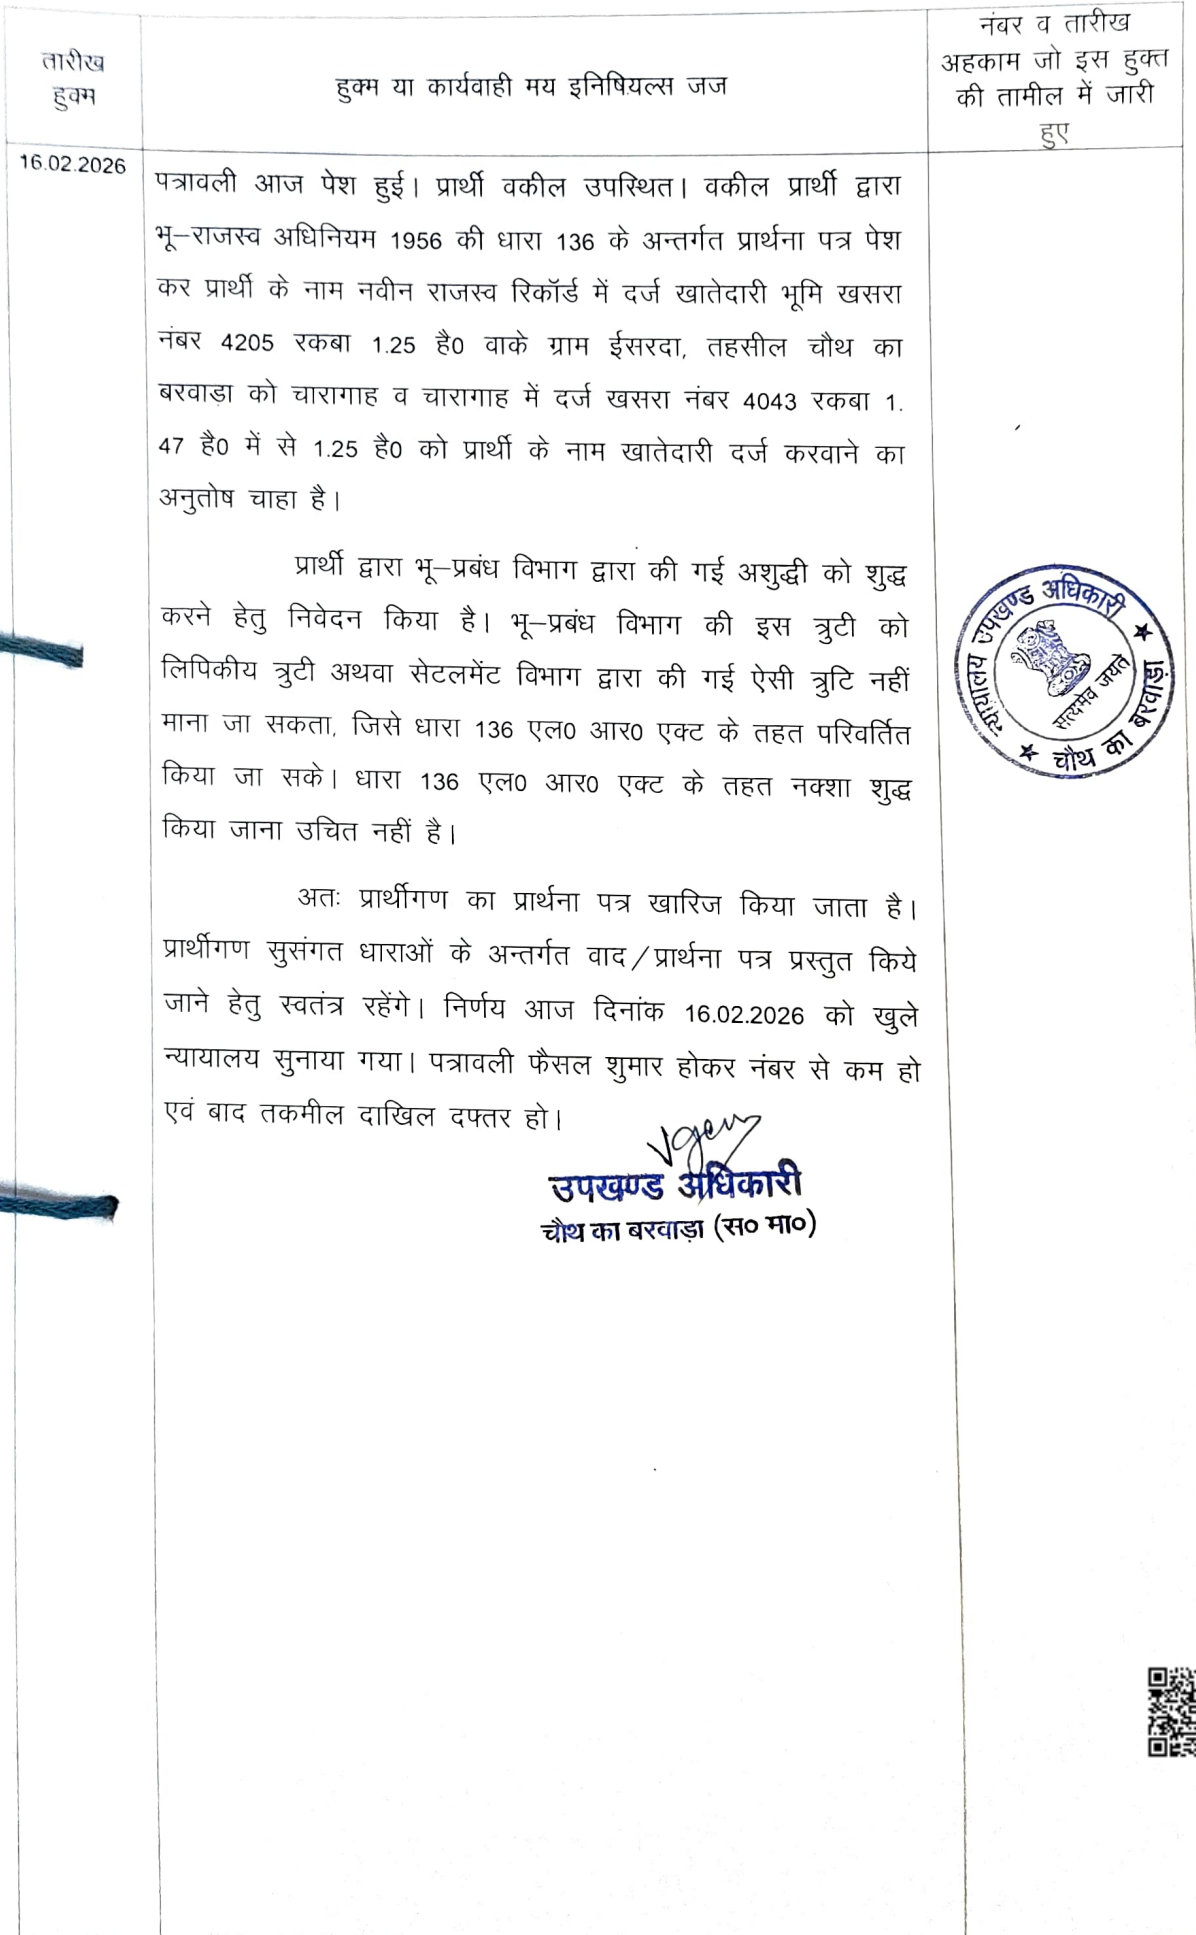 तारीख
हुक्म
हुक्म या कार्यवाही मय इनिषियल्स जज
नंबर व तारीख
अहकाम जो इस हुक्त
की तामील में जारी
हुए
16.02.2026
पत्रावली आज पेश हुई। प्रार्थी वकील उपस्थित। वकील प्रार्थी द्वारा
भू–राजस्व अधिनियम 1956 की धारा 136 के अन्तर्गत प्रार्थना पत्र पेश
कर प्रार्थी के नाम नवीन राजस्व रिकॉर्ड में दर्ज खातेदारी भूमि खसरा
नंबर 4205 रकबा 1.25 है0 वाके ग्राम ईसरदा, तहसील चौथ का
बरवाड़ा को चारागाह व चारागाह में दर्ज खसरा नंबर 4043 रकबा 1.
47 है0 में से 1.25 है0 को प्रार्थी के नाम खातेदारी दर्ज करवाने का
अनुतोष चाहा है।
प्रार्थी द्वारा भू–प्रबंध विभाग द्वारा की गई अशुद्धी को शुद्ध
करने हेतु निवेदन किया है। भू–प्रबंध विभाग की इस त्रुटी को
लिपिकीय त्रुटी अथवा सेटलमेंट विभाग द्वारा की गई ऐसी त्रुटि नहीं
माना जा सकता, जिसे धारा 136 एल0 आर0 एक्ट के तहत परिवर्तित
किया जा सके। धारा 136 एल0 आर0 एक्ट के तहत नक्शा शुद्ध
किया जाना उचित नहीं है।
अतः प्रार्थीगण का प्रार्थना पत्र खारिज किया जाता है।
प्रार्थीगण सुसंगत धाराओं के अन्तर्गत वाद/प्रार्थना पत्र प्रस्तुत किये
जाने हेतु स्वतंत्र रहेंगे। निर्णय आज दिनांक 16.02.2026 को खुले
न्यायालय सुनाया गया। पत्रावली फैसल शुमार होकर नंबर से कम हो
एवं बाद तकमील दाखिल दफ्तर हो।
उपखण्ड अधिकारी
चौथ का बरवाड़ा (स० मा०)
न्यायालय उपखण्ड अधिकारी
सत्यमेव जयते
★ चौथ का बरवाड़ा ★